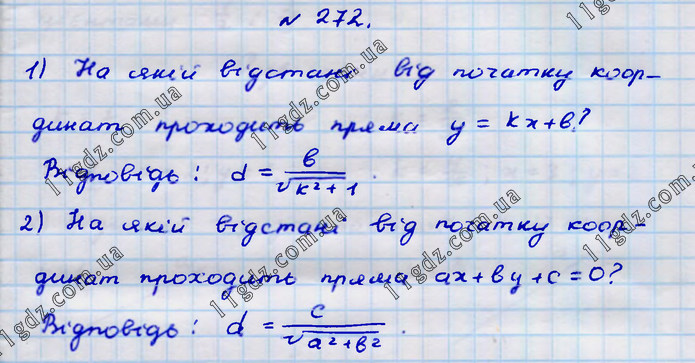 № 272.
1) На якій відстані від початку коор-
динат проходить пряма y = kx+b?
Відповідь: d = b/√k²+1.
2) На якій відстані від початку коор-
динат проходить пряма ax+by+c=0?
Відповідь: d = c/√a²+b².
11gdz.com.ua
11gdz.com.ua
11gdz.com.ua
11gdz.com.ua
11gdz.com.ua
11gdz.com.ua
11gdz.com.ua
11gdz.com.ua